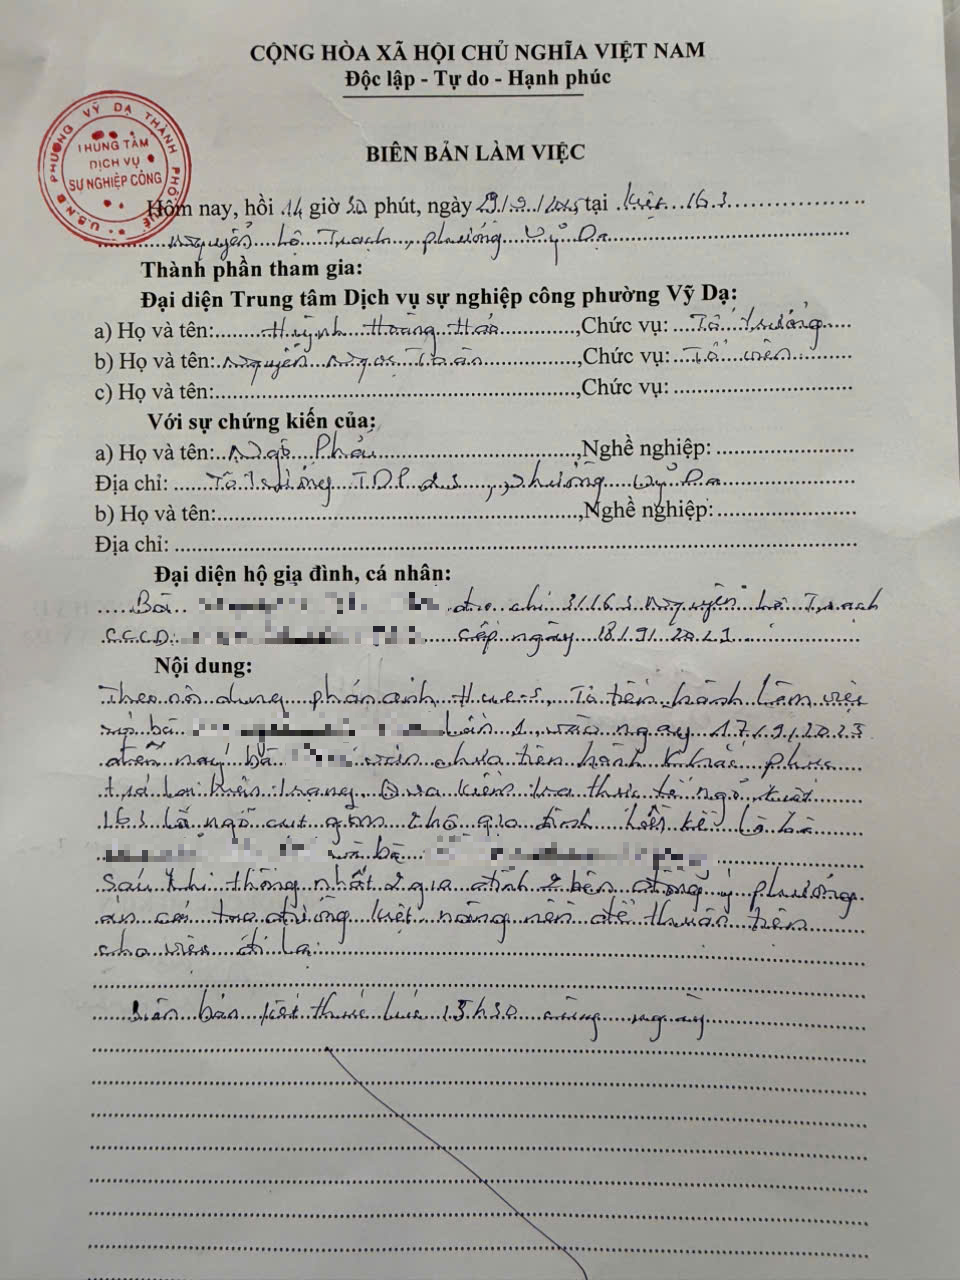 CỘNG HÒA XÃ HỘI CHỦ NGHĨA VIỆT NAM
Độc lập - Tự do - Hạnh phúc
U.B.N.D PHƯỜNG VỸ DẠ THÀNH PHỐ HUẾ
TRUNG TÂM
DỊCH VỤ
SỰ NGHIỆP CÔNG
BIÊN BẢN LÀM VIỆC
Hôm nay, hồi 14 giờ 30 phút, ngày 29/9/2025 tại kiệt 163
Nguyễn Lộ Trạch, phường Vỹ Dạ
Thành phần tham gia:
Đại diện Trung tâm Dịch vụ sự nghiệp công phường Vỹ Dạ:
a) Họ và tên: Huỳnh Hoàng Hảo, Chức vụ: Tổ trưởng
b) Họ và tên: Nguyễn Ngọc Toàn, Chức vụ: Tổ viên
c) Họ và tên:, Chức vụ:
Với sự chứng kiến của:
a) Họ và tên: Ngô Phải, Nghề nghiệp:
Địa chỉ: Tổ trưởng TDP, phường Vỹ Dạ
b) Họ và tên:, Nghề nghiệp:
Địa chỉ:
Đại diện hộ gia đình, cá nhân:
Bà địa chỉ 3/163 Nguyễn Lộ Trạch
CCCD: cấp ngày
Nội dung:
Theo nội dung phản ánh Hue-S, Tổ tiến hành làm việc
với bà lần 1 vào ngày 17/9/2025
đến nay bà vẫn chưa tiến hành khắc phục
trả lại hiện trạng. Qua kiểm tra thực tế ngõ kiệt
163 là ngõ cụt gồm gia đình liền kề là bà
và bà
Sau khi thống nhất 2 gia đình 2 bên đồng ý phương
án cải tạo đường kiệt nâng nền để thuận tiện
cho việc đi lại
Biên bản kết thúc lúc 15h30 cùng ngày